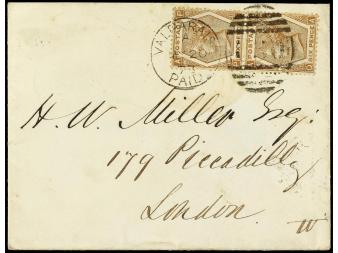 VALPARAISO
PAID
POSTAGE
SIX PENCE
H. W. Miller Esq:
179 Piccadilly
London.
W